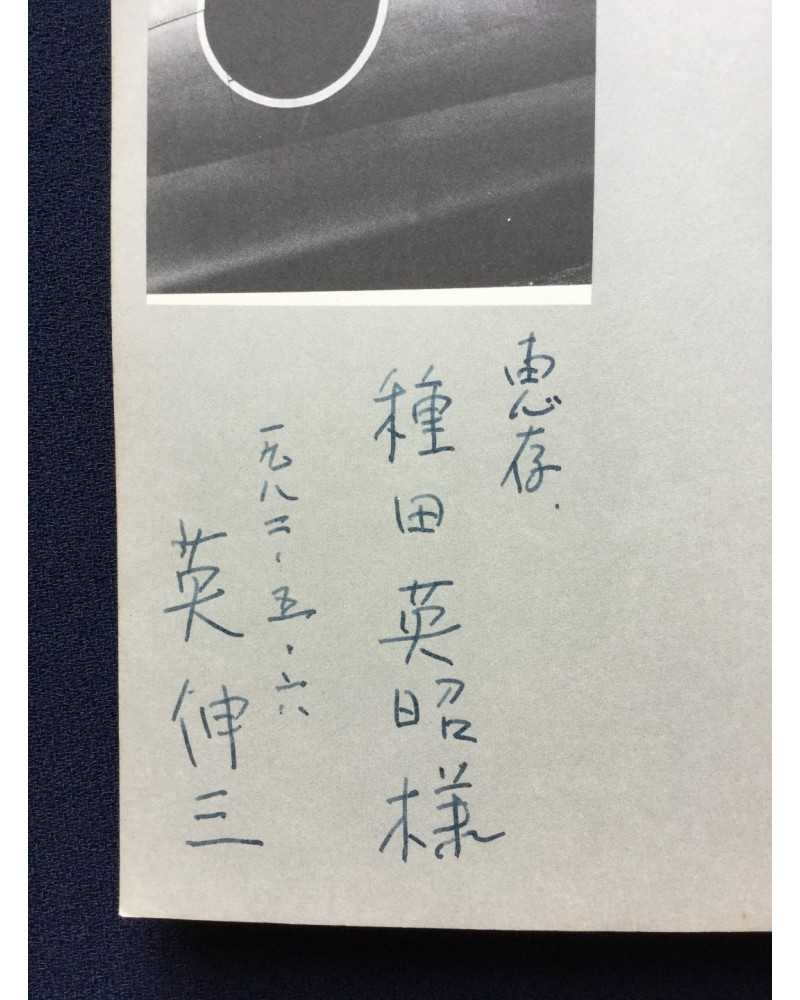 恵存.
種田英昭様
一九八二・五・六
英伸三